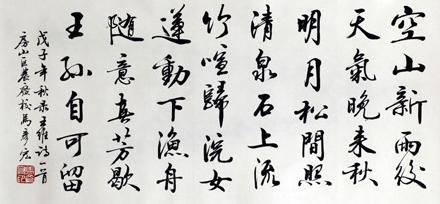 空山新雨後
天氣晚来秋
明月松間照
清泉石上流
竹喧歸浣女
蓮動下漁舟
随意春芳歇
王孫自可留
戊子年秋录王维詩一首
房山 校馬彦宏